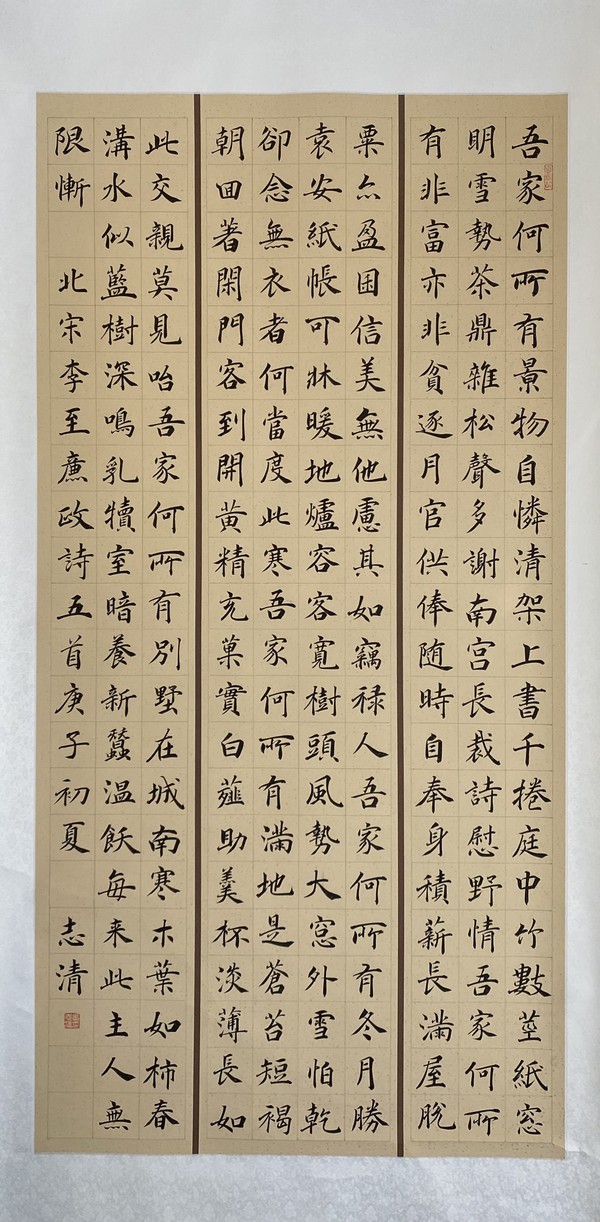 吾家何所有景物自憐清架上書千捲庭中竹數莖紙窓
明雪勢茶鼎雜松聲多謝南宮長裁詩慰野情吾家何所
有非富亦非貧逐月官供俸随時自奉身積薪長滿屋脫
粟亦盈囷信美無他慮其如竊禄人吾家何所有冬月勝
袁安紙帳可牀暖地爐容客寬樹頭風勢大窓外雪怕乾
卻念無衣者何當度此寒吾家何所有滿地是蒼苔短褐
朝回著閑門客到開黄精充菓實白薤助羹杯淡薄長如
此交親莫見咍吾家何所有別墅在城南寒木葉如柿春
溝水似藍樹深鳴乳犢室暗養新蠶温飫每来此主人無
限慚 北宋李至廉政詩五首庚子初夏 志清